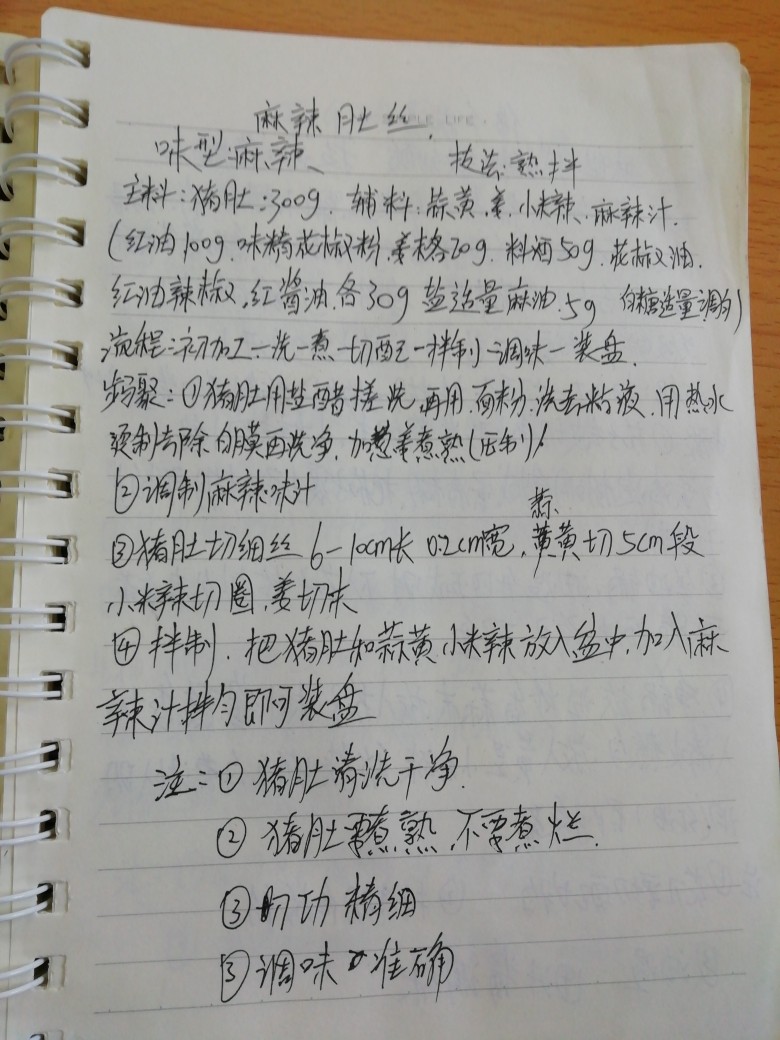 麻辣肚丝
味型:麻辣 技法:熟拌
主料:猪肚:300g. 辅料:蒜黄.姜.小米辣.麻辣汁.
(红油100g.味精花椒粉.姜 20g.料酒50g.花椒油.
红油辣椒.红酱油.各30g 盐适量麻油.5g 白糖适量调匀)
流程:初加工一洗一煮一切配一拌制一调味一装盘.
步聚:①猪肚用盐醋搓洗再用.面粉.洗去粘液.用热水
烫制去除白膜再洗净.加葱姜煮熟(压制)
②调制麻辣味汁
③猪肚切细丝6-10cm长 0.2cm宽,蒜黄切5cm段
小米辣切圈.姜切末
④拌制.把猪肚和蒜黄小米辣放入盆中.加入麻
辣汁拌匀即可装盘
注:①猪肚清洗干净.
②猪肚要煮熟.不要煮烂.
③切功精细
③调味 准确